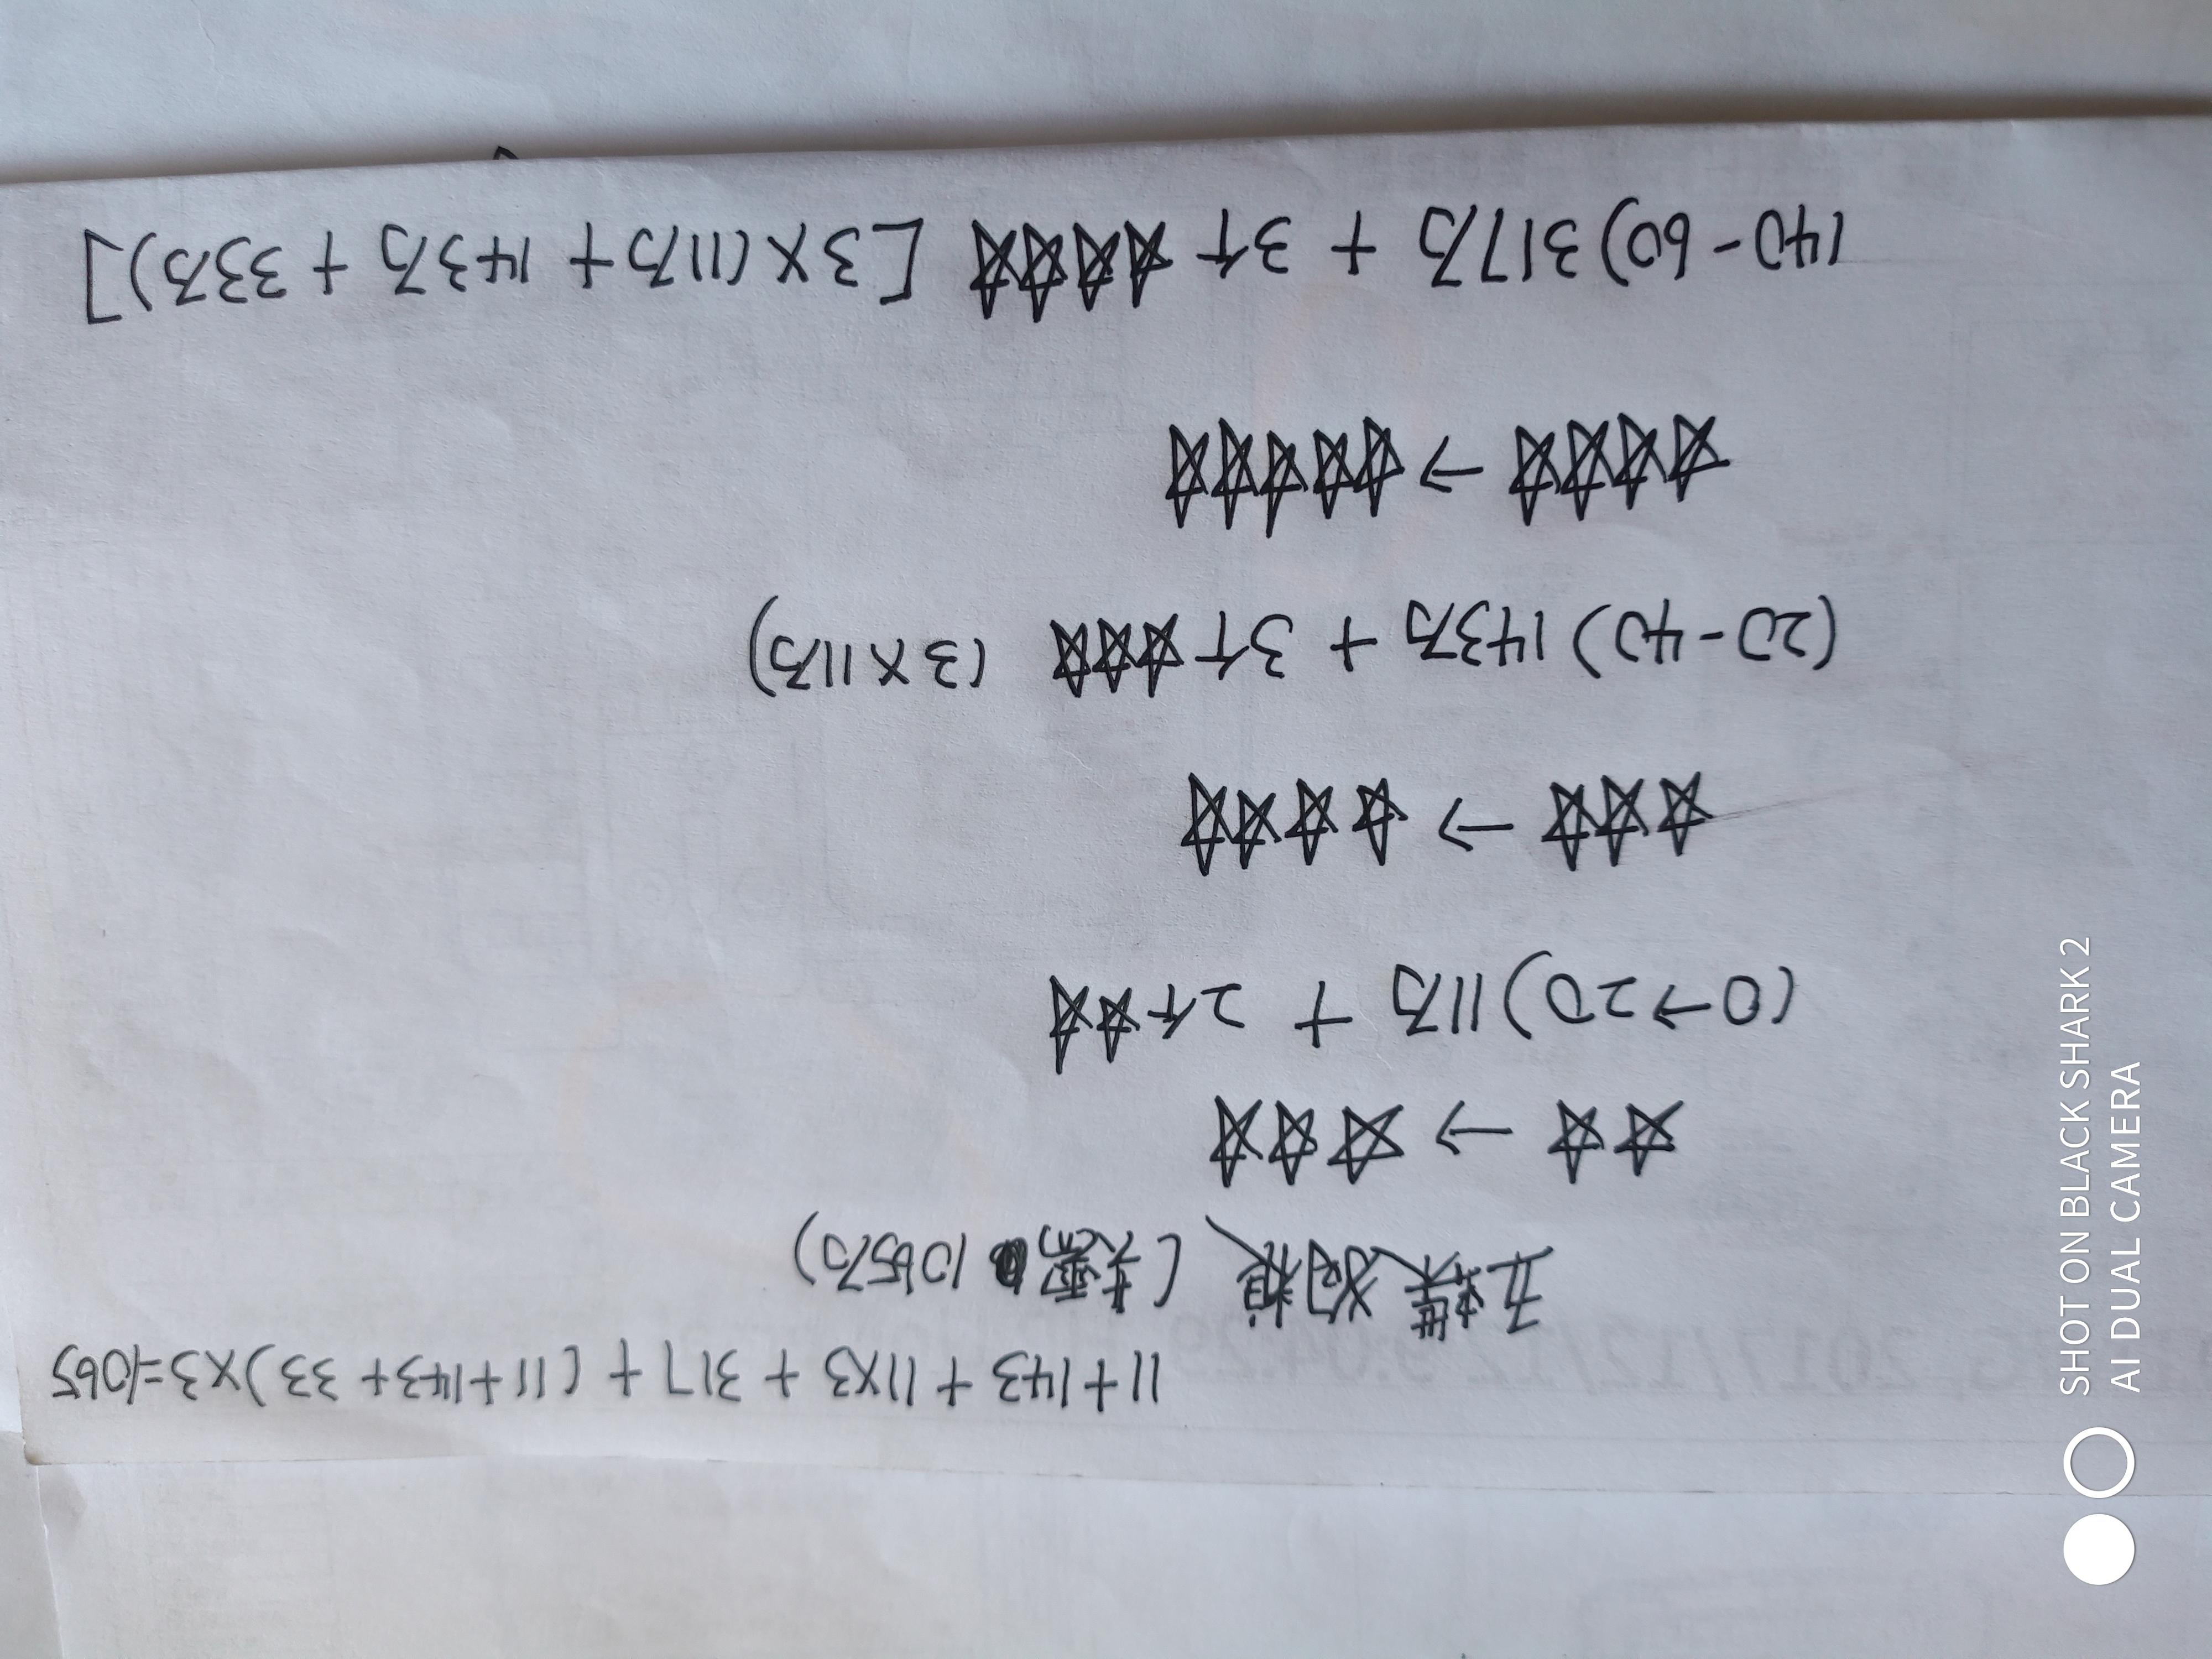 11+143+11×3+317+(11+143+33)×3=1065
五樣狗粮 (共需 1065万)
☆☆ → ☆☆☆
(0→20) 11万 + 2个☆☆
☆☆☆ → ☆☆☆☆
(20-40) 143万 + 3个☆☆☆ (3×11万)
☆☆☆☆ → ☆☆☆☆☆
(40-60) 317万 + 3个☆☆☆☆ [3×(11万+143万+33万)]
SHOT ON BLACK SHARK 2
AI DUAL CAMERA